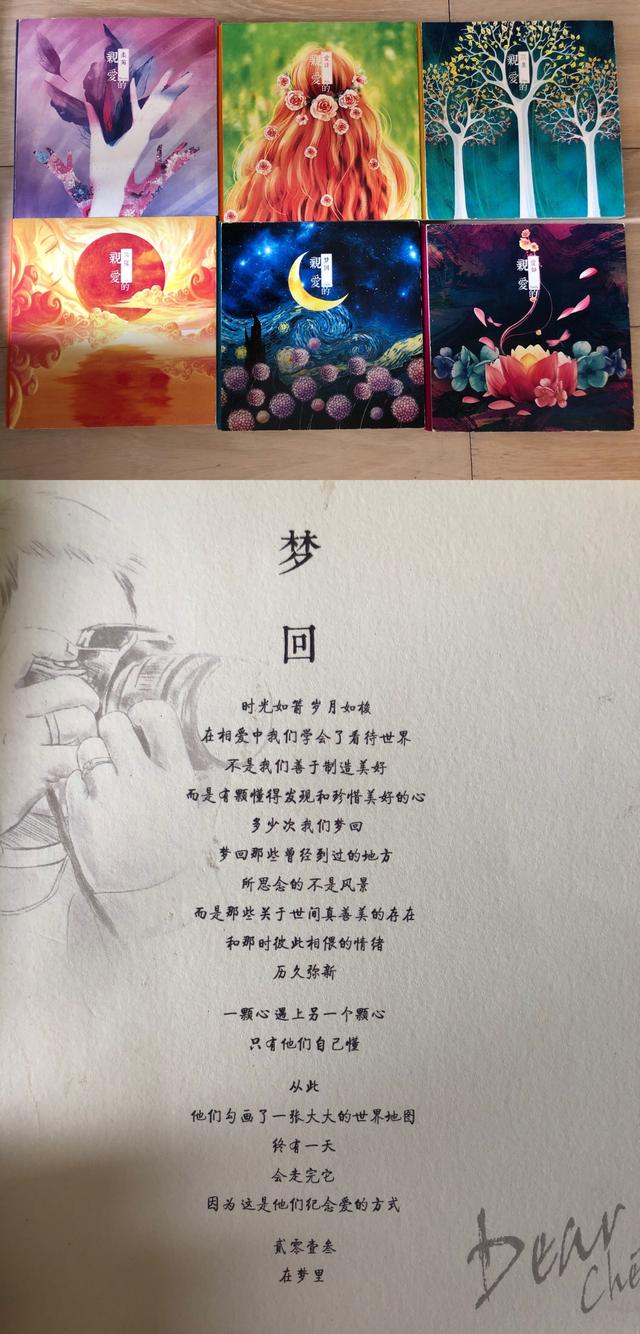 親愛的
親愛的
親愛的
親愛的
親愛的
梦回
親愛的
梦
回
时光如箭 岁月如梭
在相爱中我们学会了看待世界
不是我们善于制造美好
而是有颗懂得发现和珍惜美好的心
多少次我们梦回
梦回那些曾经到过的地方
所思念的不是风景
而是那些关于世间真善美的存在
和那时彼此相偎的情绪
历久弥新
一颗心遇上另一个颗心
只有他们自己懂
从此
他们勾画了一张大大的世界地图
终有一天
会走完它
因为这是他们纪念爱的方式
贰零壹叁
在梦里
Dear
Che